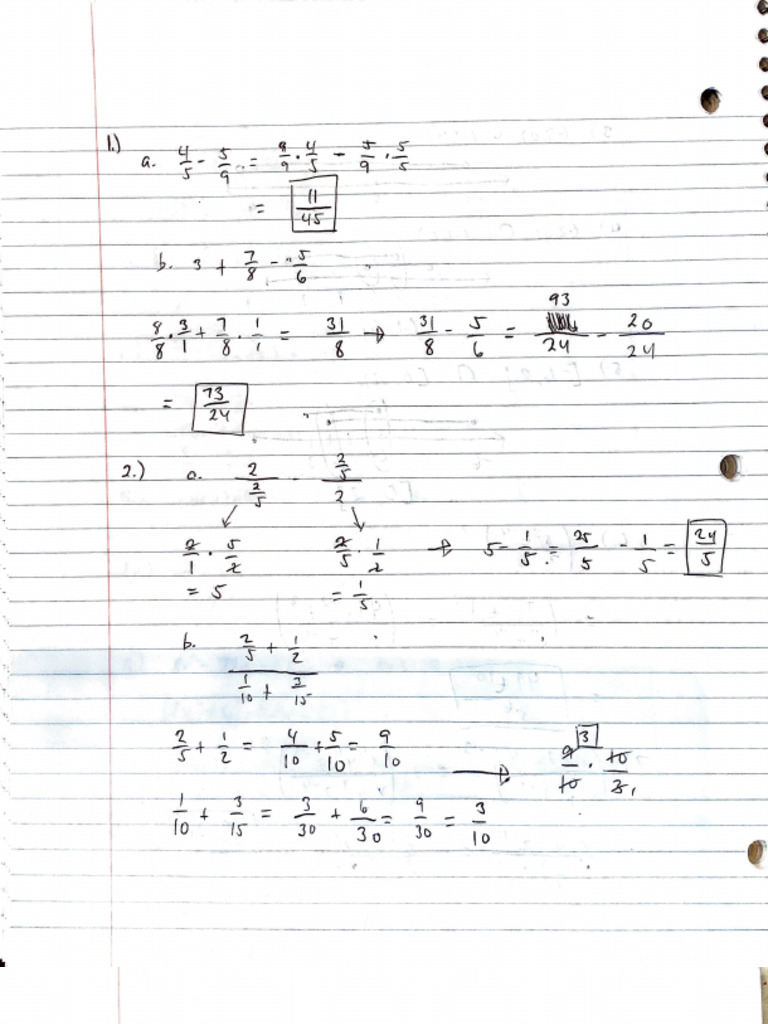 1.)
a. 4/5 - 5/9 = 9/9 · 4/5 - 5/9 · 5/5
= 11/45
b. 3 + 7/8 - 5/6
8/8 · 3/1 + 7/8 · 1/1 = 31/8 → 31/8 - 5/6 = 93/24 - 20/24
= 73/24
2.) a. 2/(2/5) - (2/5)/2
2/1 · 5/2 2/5 · 1/2 → 5 - 1/5 = 25/5 - 1/5 = 24/5
= 5 = 1/5
b. (2/5 + 1/2)/(1/10 + 3/15)
2/5 + 1/2 = 4/10 + 5/10 = 9/10 → 9/10 · 10/3 3 1
1/10 + 3/15 = 3/30 + 6/30 = 9/30 = 3/10